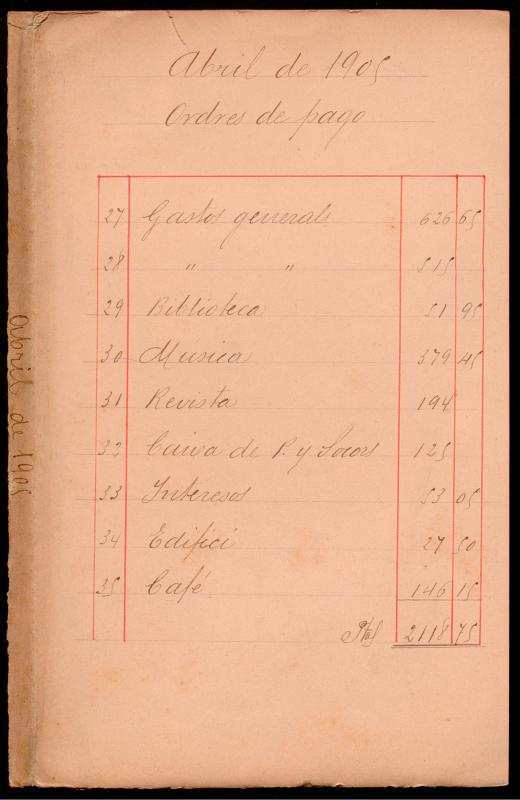 Abril de 1905
Ordres de pago
27 Gastos generals 626 65
28 " " 515
29 Biblioteca 51 95
30 Música 379 45
31 Revista 194
32 Caixa de P. y Socors 125
33 Interesos 53 05
34 Edifici 27 50
35 Café 146 15
Ptas 2118 75
Abril de 1905